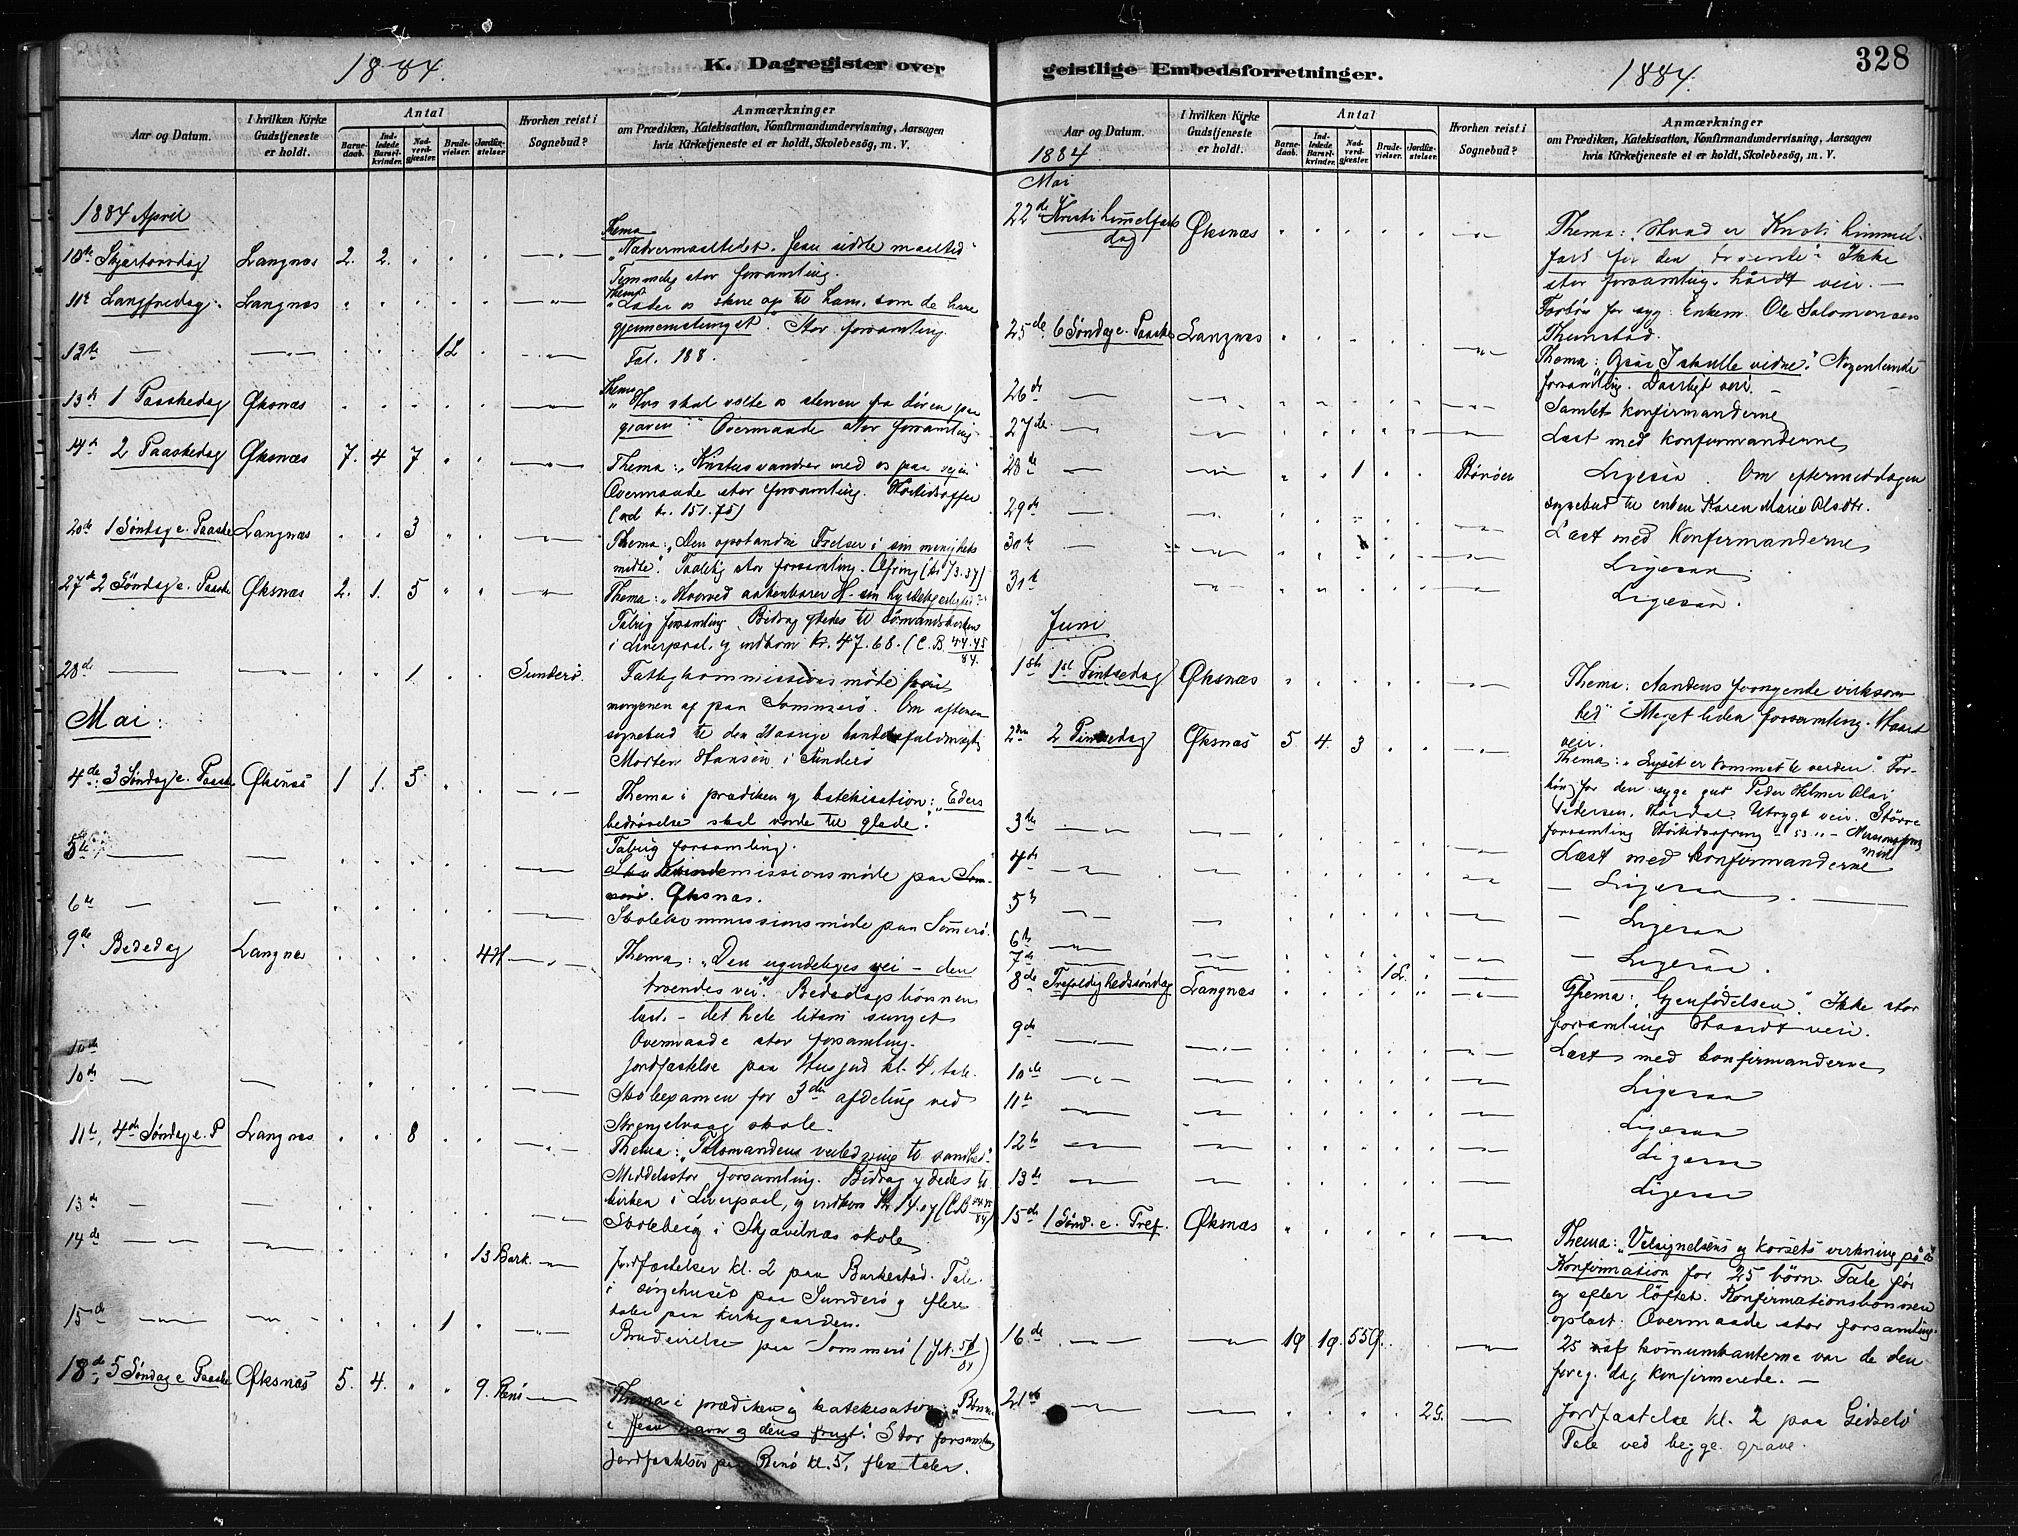 1884.
K. Dagregister over
Aar og Datum.
I hvilken Kirke Gudstjeneste er holdt.
Antal
Barnedaab.
Indledede Barselkvinder.
Nadverdgjæster.
Brudevielser.
Jordfæstelser
Hvorhen reist i Sognebud?
Anmærkninger
om Prædiken, Katekisation, Konfirmandundervisning, Aarsagen
hvis Kirketjeneste ei er holdt, Skolebesøg, m. V.
1884 April
Thema
10de Skjærtorsdag Langnes 2. 2. „Nadvermaaltedet. Jesu sidste maaltid“
Temmelig stor forsamling.
11te Langfredag. Langnes Thema
gjennemstunget“. Stor forsamling.
12te 1L Tal. 188.
Thema
13de 1 Paaskedag Øksnæs
graven“ Overmaade stor forsamling.
14de 2 Paaskedag Øksnæs 7. 4 7 Thema: „Kristus vandrer med os paa veien“
Overmaade stor forsamling. Høitidsoffer
20de 1 Søndag e. Paaske Langnæs 3 Thema: „Den opstandne Frelser i sin menigheds
midte“.
27de 2 Søndag e. Paaske Øksnæs 2. 1. 5
Talrig forsamling. Bidrag ydedes til Sømandskirken
i Liverpool, og indkom kr. 47.68. (C.B. 44.45/84.
28de 1 Sunderø. Fattigkommissionsmøde
morgenen af paa Sommerø. Om aftenen
sognebud til den
Morten Hansen i Sunderø
Mai:
4de 3 Søndag e. Paaske Øksnæs 1 1. 5 Thema i prædiken og katekisation: „Eders
bedrøvelse skal vorde til glæde“.
Talrig forsamling.
5te Kvindemissionsmøde paa
Øksnæs.
6te Skolekommissionsmøde paa Sommerø.
9de Bededag Langnes 4H Thema: „Den ugudeliges vei – den
troendes vei“. Bededagsbønnen
læst. – det hele litani sunget
Overmaade stor forsamling.
Jordfæstelse paa Husjord kl. 4. tale.
10de
10de Skoleexamen for 3die afdeling ved
Strengelvaag skole.
11te, 4de Søndag e. P Langnes 8 Thema: „Talsmandens veiledning til sandhed“.
Middelsstor forsamling. Bidrag ydedes til
kirken i Liverpool, og indkom kr. 14.
13de Skolebesøg i Skjævelnæs skole
14de 13 Bark. Jordfæstelser kl. 2 paa Barkestad. Tale
i sørgehuset paa Sunderø og flere
taler paa kirkegaarden.
15de 1 Brudevielse paa Sommerø
18de 5 Søndag e Paaske Øksnæs 5. 4. 9. Renø Thema i prædiken og katekisation: „Bønnen
i Jesu navn og dens frugt“. Stor forsamling
Jordfæstelser paa Renø kl. 5, flere taler.
geistlige Embedsforretninger.
1884.
328
Aar og Datum.
I hvilken Kirke Gudstjeneste er holdt.
Antal
Barnedaab.
Indledede Barselkvinder.
Nadverdgjæster.
Brudevielser.
Jordfæstelser.
Hvorhen reist i Sognebud?
Anmærkninger
om Prædiken, Katekisation, Konfirmandundervisning, Aarsagen
hvis Kirketjeneste ei er holdt, Skolebesøg, m. V.
1884
Mai
22de Kristi himmelfartsdag Øksnæs Thema: „Hvad er Kristi himmelfart for den troende“. Ikke
stor forsamling. hårdt veir.
Forbøn for syg: Enkem. Ole Salomonsen
25de 6 Søndag e. Paaske Langnæs
Thema: „Også I skulle vidne“. Nogenlunde
forsamling. Daarligt veir.
26de Samlet konfirmanderne
27de Læst med konfirmanderne
28de 1 Børøen Ligesaa. Om eftermiddagen
sognebud til enken Karen Marie Olsdtr.
29de Læst med Konfirmanderne
30te Ligesaa
31te Ligesaa.
Juni
1ste 1ste Pintsedag Øksnæs Thema: Aandens virksomhed“. Meget liden forsamling. Haardt
veir.
2den 2 Pintsedag Øksnæs 5 4. 3 Thema: „Lyset er kommet til verden“. Forbøn for den syge gut Peder Hilmer Olai
Pedersen, Utrygt veir. Større
forsamling
3de Læst med konfirmanderne
4de Ligesaa
5te Ligesaa
6te Ligesaa.
7de 1L.
8de Trefoldighedssøndag Langnæs Thema: „Gjenfødelsen“. Ikke stor
forsamling Haardt veir.
9de Læst med konfirmanderne
10de Ligesaa
11te Ligesaa
12te Ligesaa
13de Ligesaa
15de 1 Sønd. e. Tref. Øksnæs Thema: „Velsignelsens og korsets virkning på os“
Konfirmation for 25 børn. Tale før
og efter løftet. Konfirmationsbønnen
oplæst. Overmaade stor forsamling.
16de 19 19. 559. 25 af kommunikanterne var de den
foreg. dag konfirmerede. –
21de 2G. Jordfæstelse kl. 2 paa Gidselø
Tale ved begge grave.